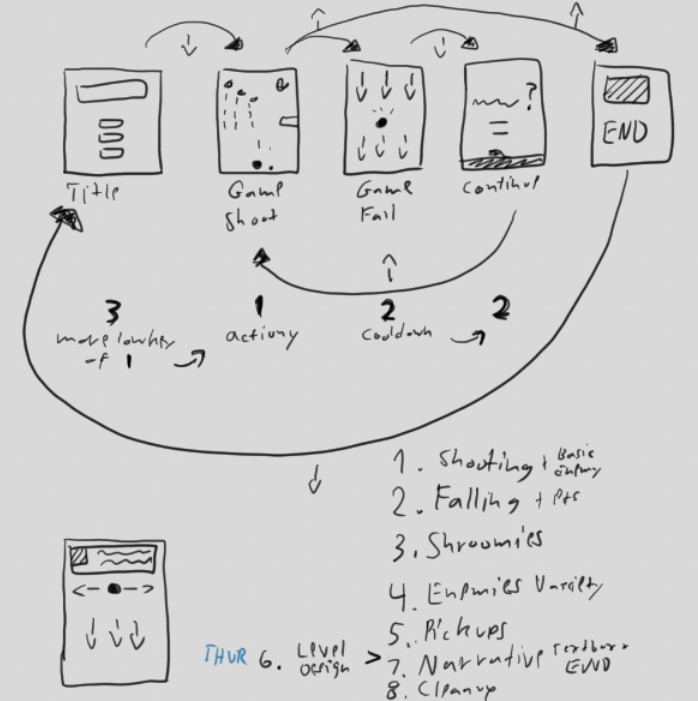 ?
END
Title
Game
Shoot
Game
Fail
Continue
3
more lowkey
of 1
1
actiony
2
cooldown
2
1. Shooting + Basic
Enemy
2. Falling + Pts
3. Shroomies
4. Enemies Variety
5. Pickups
THUR 6. Level
Design
> 7. Narrative Textbox +
END
8. Cleanup